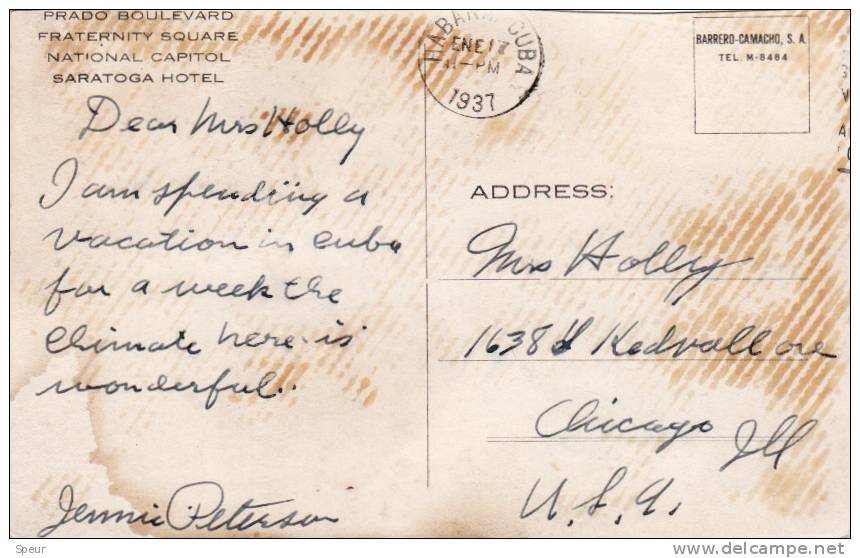 PRADO BOULEVARD
FRATERNITY SQUARE
NATIONAL CAPITOL
SARATOGA HOTEL
HABANA CUBA
ENE 17
PM
1937
BARRERO-CAMACHO, S. A.
TEL. M-8464
Dear Mrs Holly
I am spending a
vacation in Cuba
for a week the
climate here is
wonderful..
Jennie Peterson
ADDRESS:
Mrs Holly
1638 Kedvall ave
Chicago Ill
U.S.A.
Speur
delcampe.net